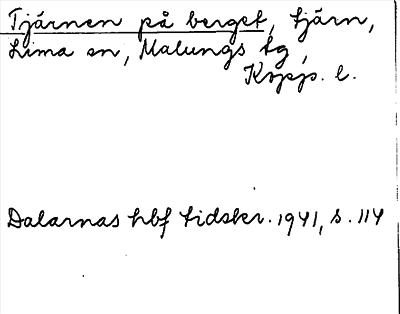 Tjärnen på berget, tjärn,
Lima sn, Malungs tg,
Kopp. l.
Dalarnas hbf tidskr. 1941, s. 114